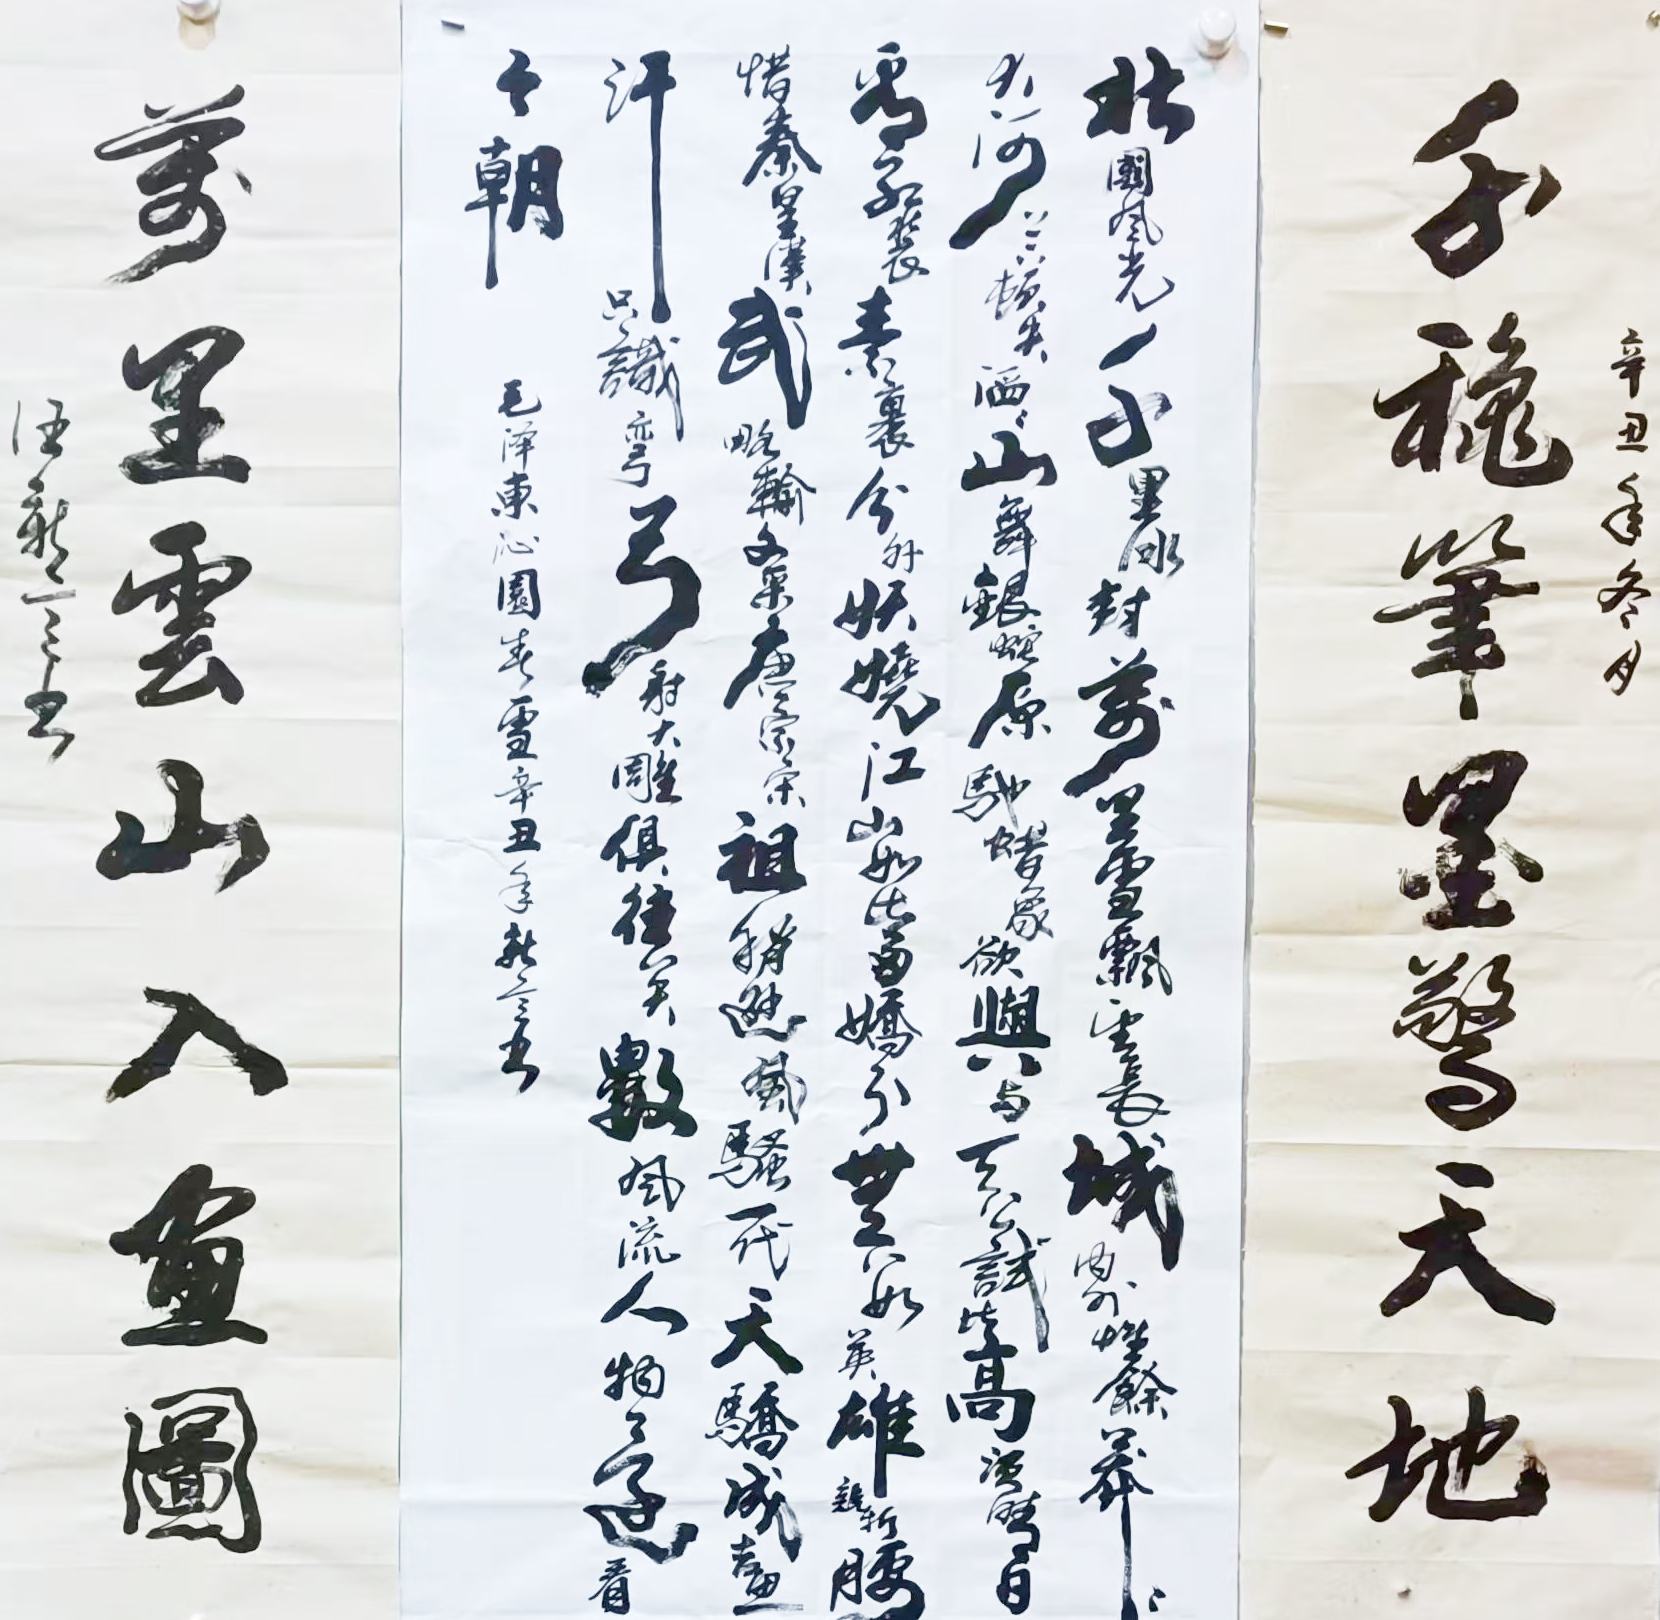 辛丑年冬月
千穐筆墨驚天地
北國風光千里冰封萬里雪飄望長城内外惟餘莽〻
大河上下頓失滔〻山舞銀蛇原馳蜡象欲與天公試比高須晴日
看紅裝素裹分外妖嬈江山如此多嬌引無數英雄競折腰
惜秦皇漢武略輸文采唐宗宋祖稍遜風騷一代天驕成吉思
汗只識彎弓射大雕俱往矣數風流人物還看
今朝
毛泽東沁園春雪辛丑年新言書
萬里雲山入畫圖
汪新言書